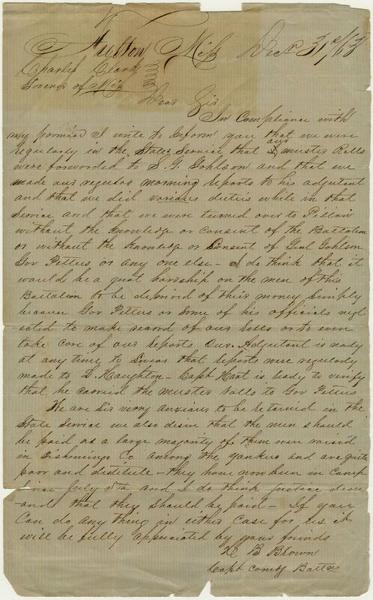 Fulton Miss Decr 31st/63
Charles Clark
Governor of Miss
Dear Sir
In compliance with
my promise I write to inform you that we were
regularly in the State Service that our muster Rolls
were forwarded to S. J. Gholson and that we
made our regular morning reports to his adjutant
and that we did various duties while in that
Service and that we were turned over to
without the knowledge or consent of the Battalion
or without the knowledge or consent of Genl Gholson
Gov Pettus, or any one else - I do think that it
would be a great hardship on the men of this
Battalion to be deprived of their money simply
because Gov Pettus or some of his officials negl
ected to make record of our Rolls or to even
take care of our reports. Our Adjutant is ready
at any time to Swear that reports were regularly
made to D. Haughton - Capt Hart is ready to verify
that he carried the muster rolls to Gov Pettus
We are Sir very anxious to be returned in the
State Service we also desire that the men should
be paid as a large majority of them were raised
in Tishomingo Co among the yankees and are quite
poor and destitute - they have now been in Camp
Since July and I do think justice dem
ands that they should be paid - If you
Can do any thing in either Case for us it
will be fully appreciated by your friends
B Brown
Capt comdg Battn